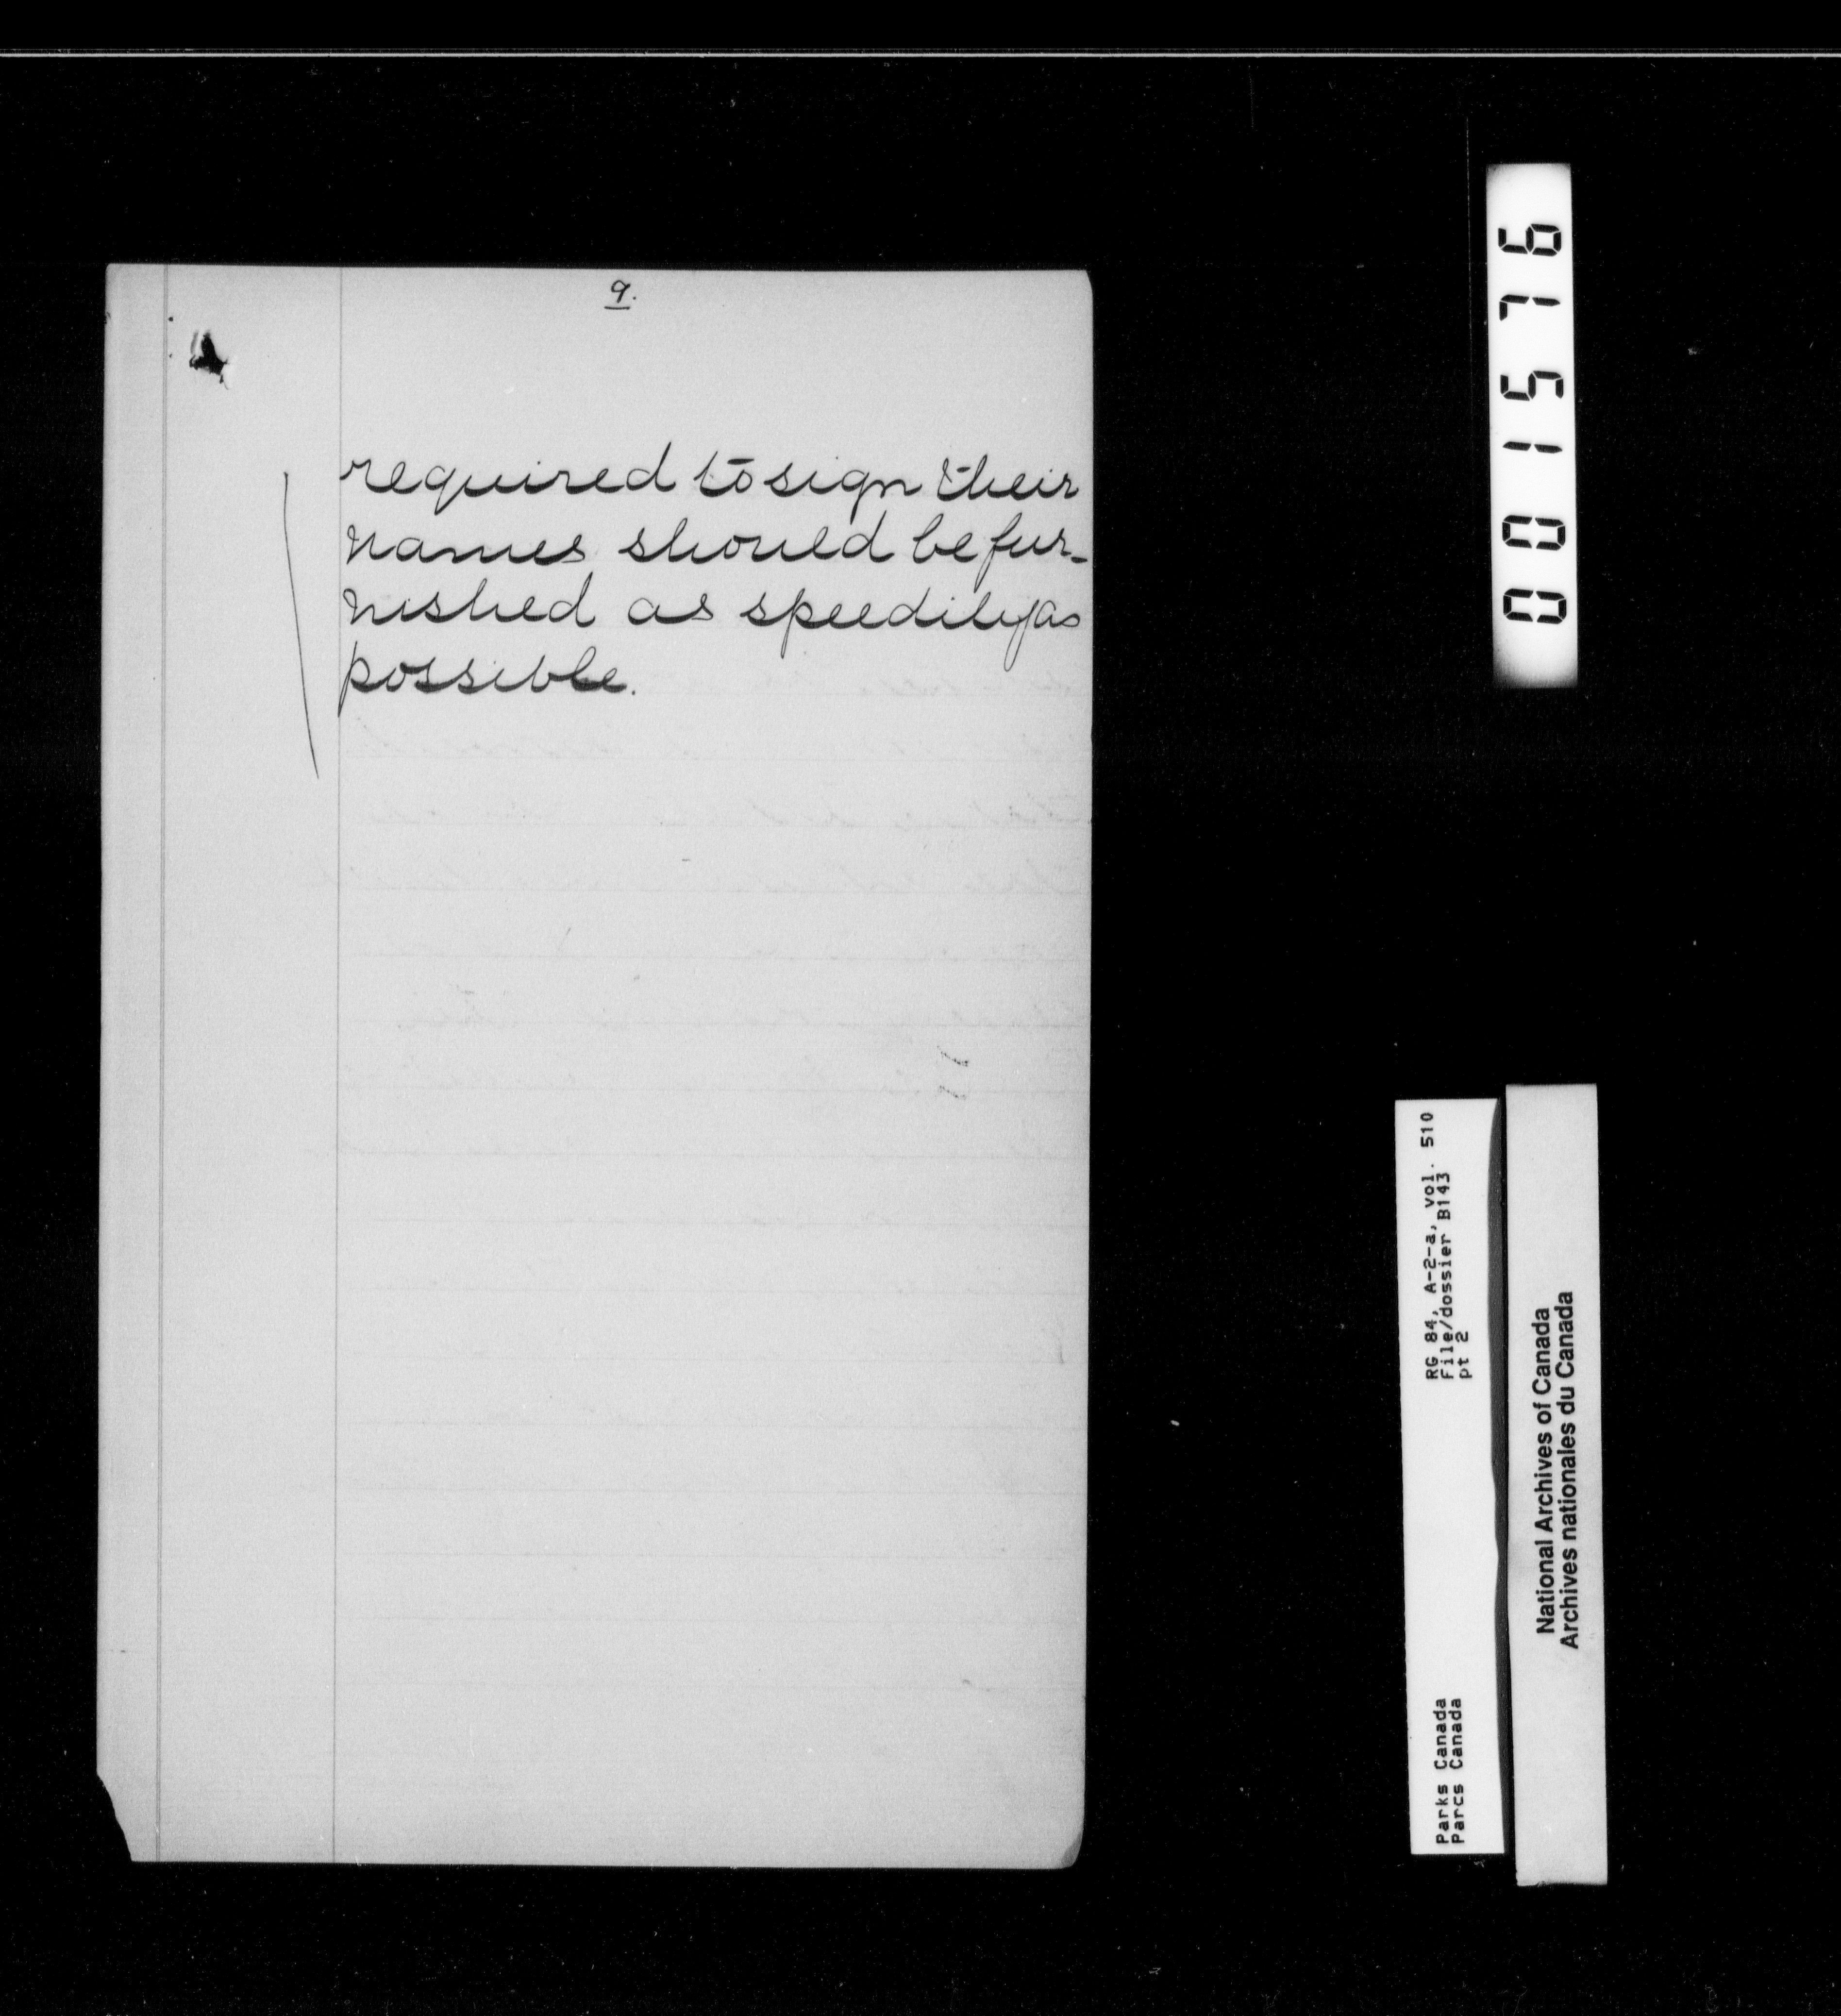 9.
required to sign their
names should be fur-
nished as speedily as
possible.
001576
RG 84, A-2-a, vol. 510
File/dossier B143
pt 2
Parks Canada
Parcs Canada
National Archives of Canada
Archives nationales du Canada